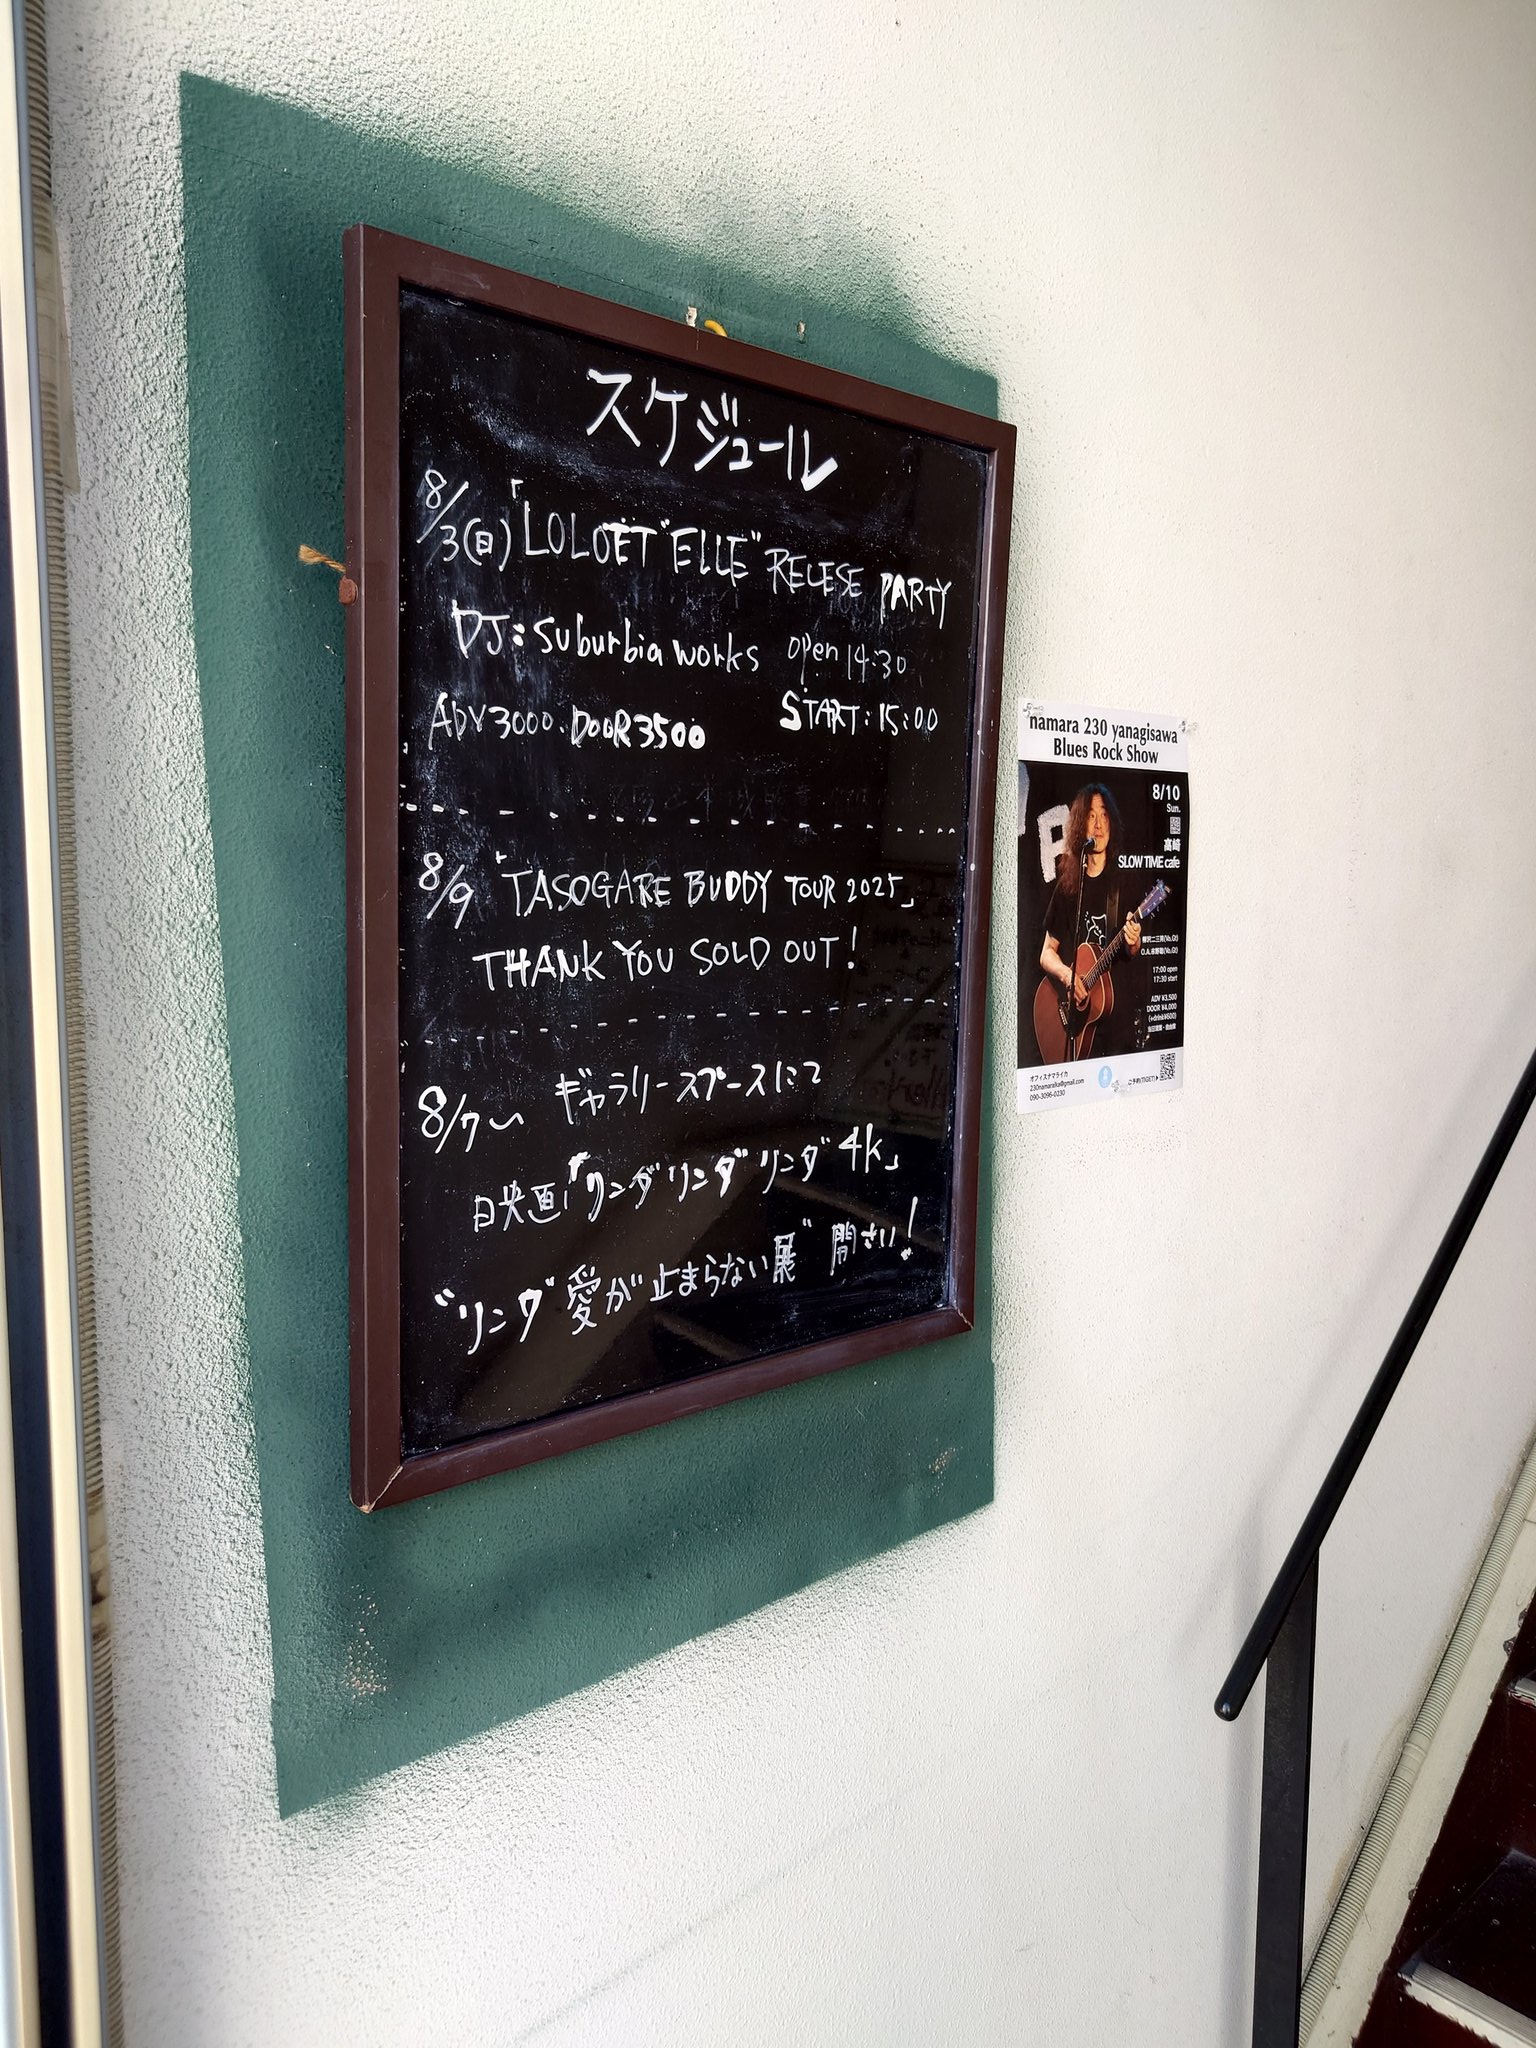 スケジュール
8/3(日)「LOLOET "ELLE" RELESE PARTY
DJ:Suburbia works open 14:30
ADV3000.DOOR3500 START:15:00
8/9 「TASOGARE BUDDY TOUR 2025」
THANK YOU SOLD OUT!
8/7〜 ギャラリースプースにて
映画「リンダリンダリンダ4K」
"リンダ愛が止まらない展" 開さい!
namara 230 yanagisawa
Blues Rock Show
8/10
Sun.
高崎
SLOW TIME cafe
17:00 open
17:30 start
ADV ¥3,500
DOOR ¥4,000
(+drink¥600)
オフィスナマライカ
230namaraika@gmail.com
090-3096-0230
ご予約(TIGET)▶